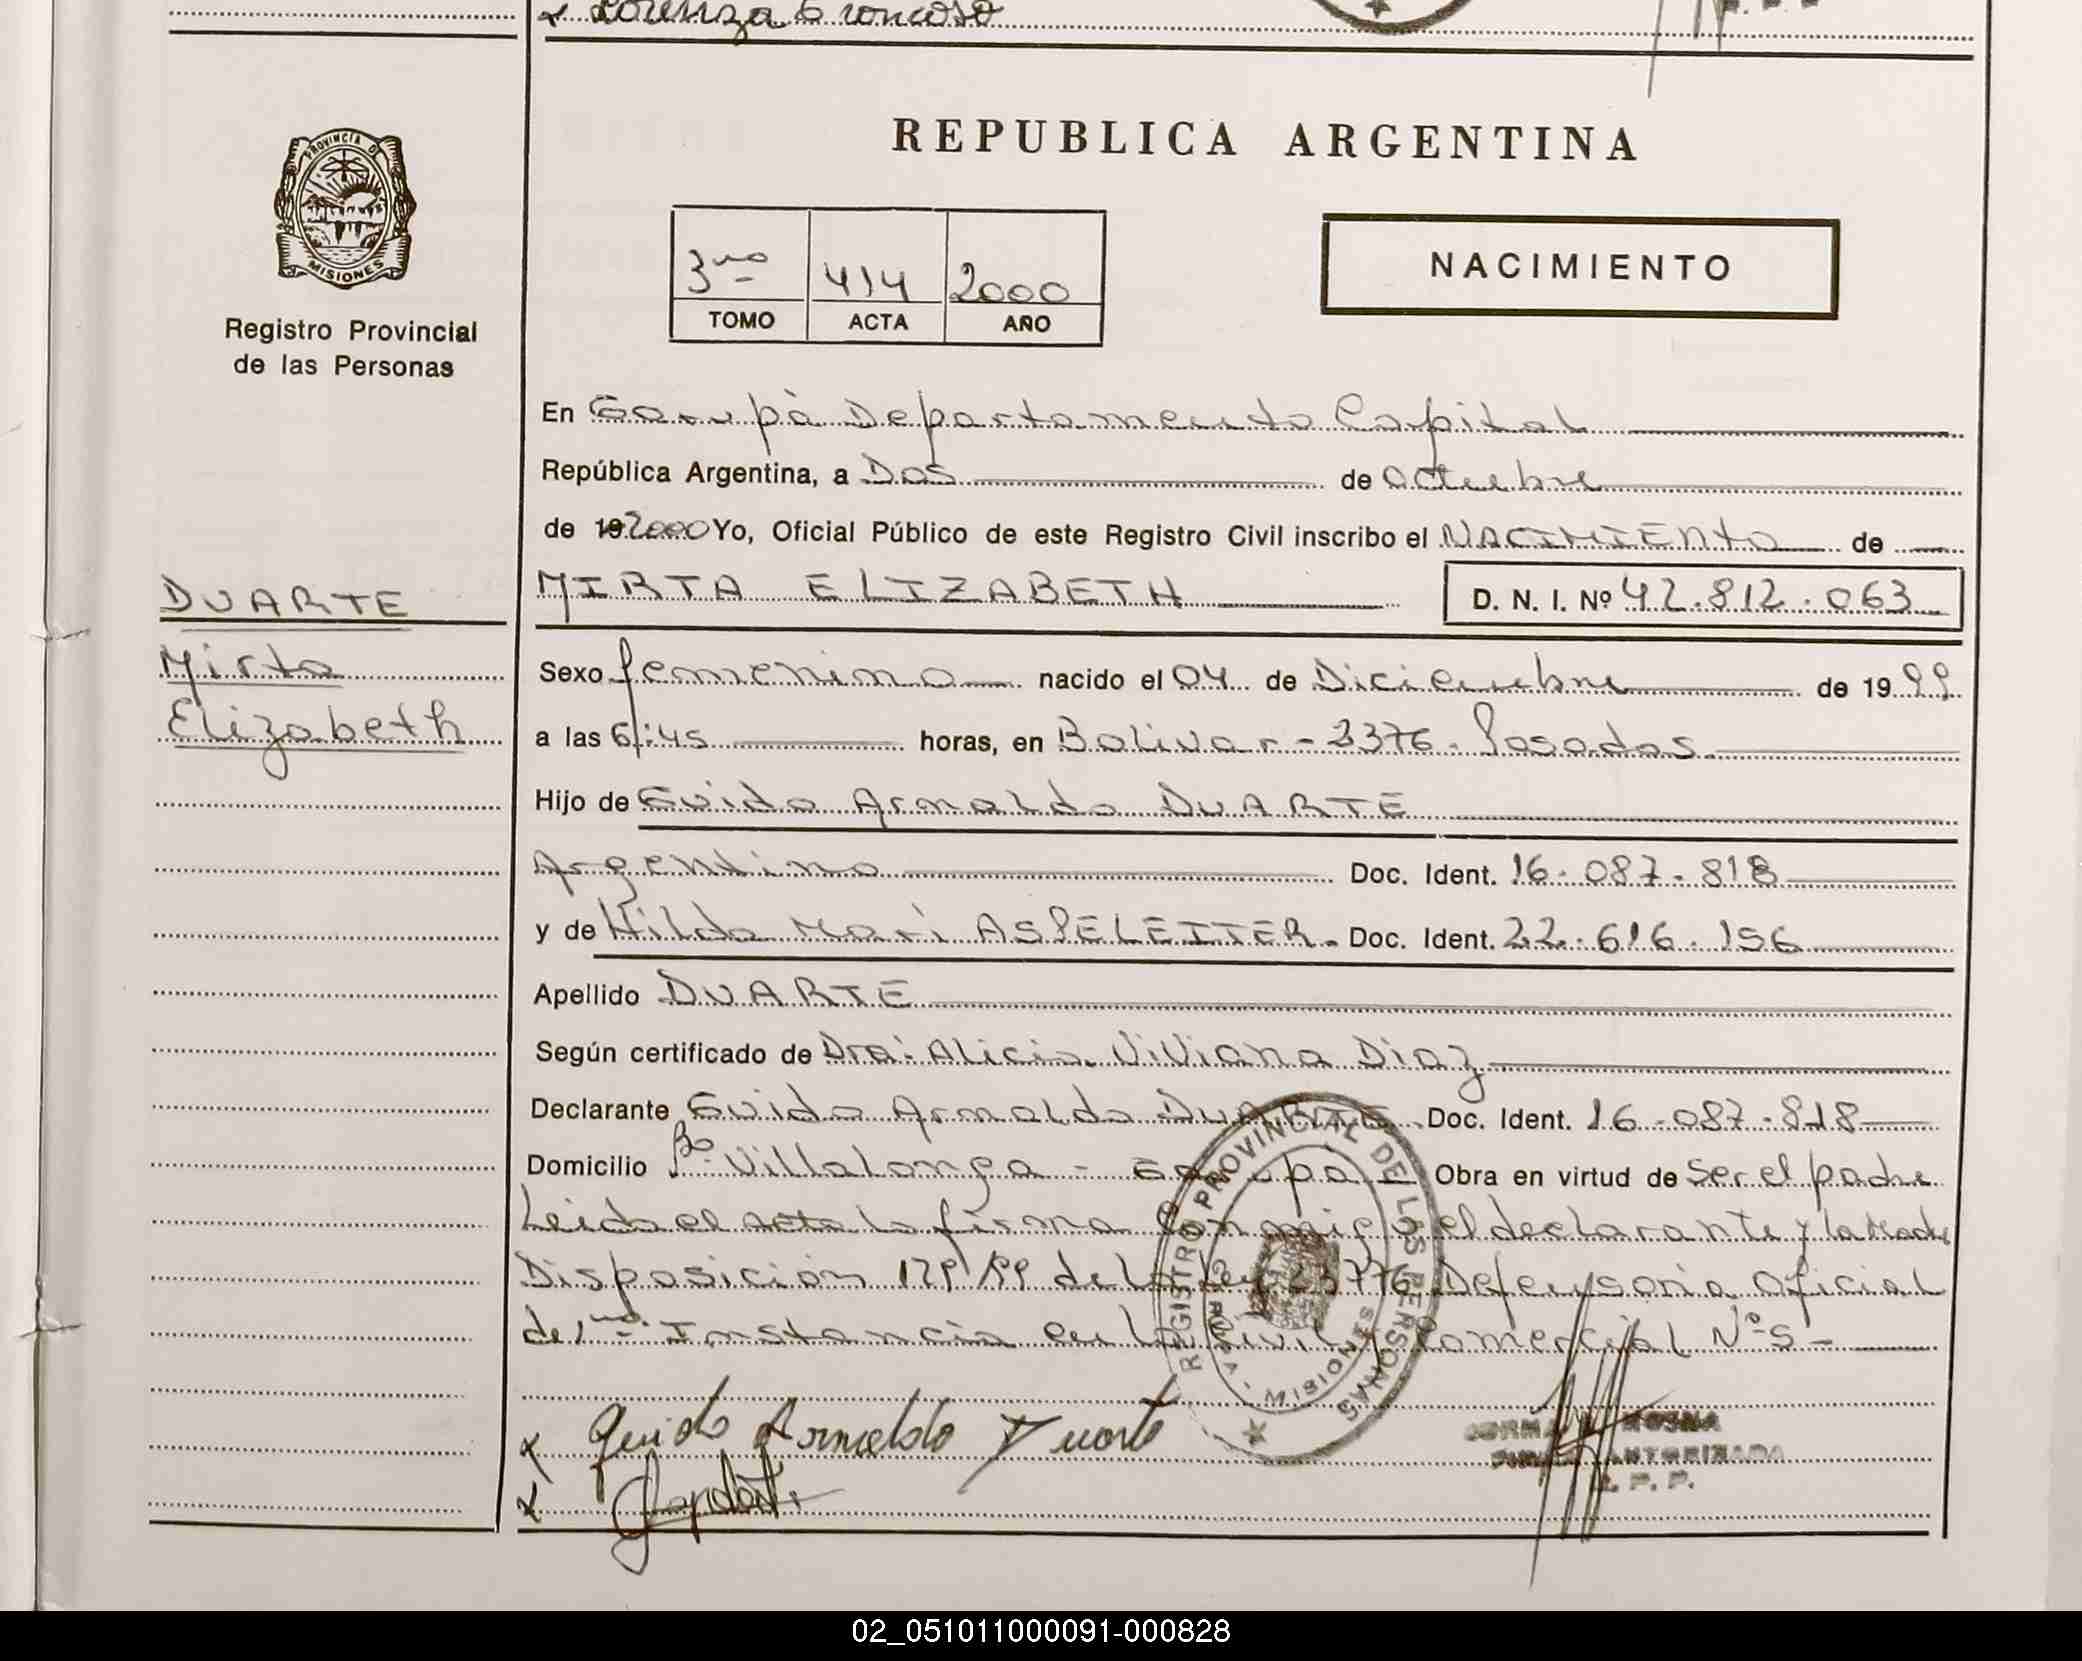 x Lorenza Troncoso
PROVINCIA DE
MISIONES
Registro Provincial
de las Personas
REPUBLICA ARGENTINA
3ro 414 2000
TOMO ACTA AÑO
NACIMIENTO
En Garupà Departamento Capital
República Argentina, a Dos de Octubre
de 19 2000 Yo, Oficial Público de este Registro Civil inscribo el NACIMIENto de
DUARTE
MIRTA ELIZABETH D. N. I. Nº 42.812.063
Mirta
Sexo femenino nacido el 04 de Diciembre de 1999
Elizabeth
a las 6:45 horas, en Bolivar - 2376 - Posadas
Hijo de Guido Arnaldo DUARTE
Argentino Doc. Ident. 16-087-818
y de Hilda Mari ASPELEITER - Doc. Ident. 22-616-156
Apellido DUARTE
Según certificado de Dra: Alicia Viviana Diaz
Declarante Guido Arnaldo DUARTE Doc. Ident. 16-087-818
Domicilio Bo Villalonga - Garupà Obra en virtud de Ser el padre
Leida el acta la firma conmigo el declarante y la Madre
Disposición 179/99 de la Ley 23776 Defensoria Oficial
de 1ra Instancia en lo Civil y Comercial Nº 5 -
REGISTRO PROVINCIAL DE LAS PERSONAS
MISIONES
x Guido Arnaldo Duarte
x
FIRMA AUTORIZADA
R. P. P.
02_051011000091-000828